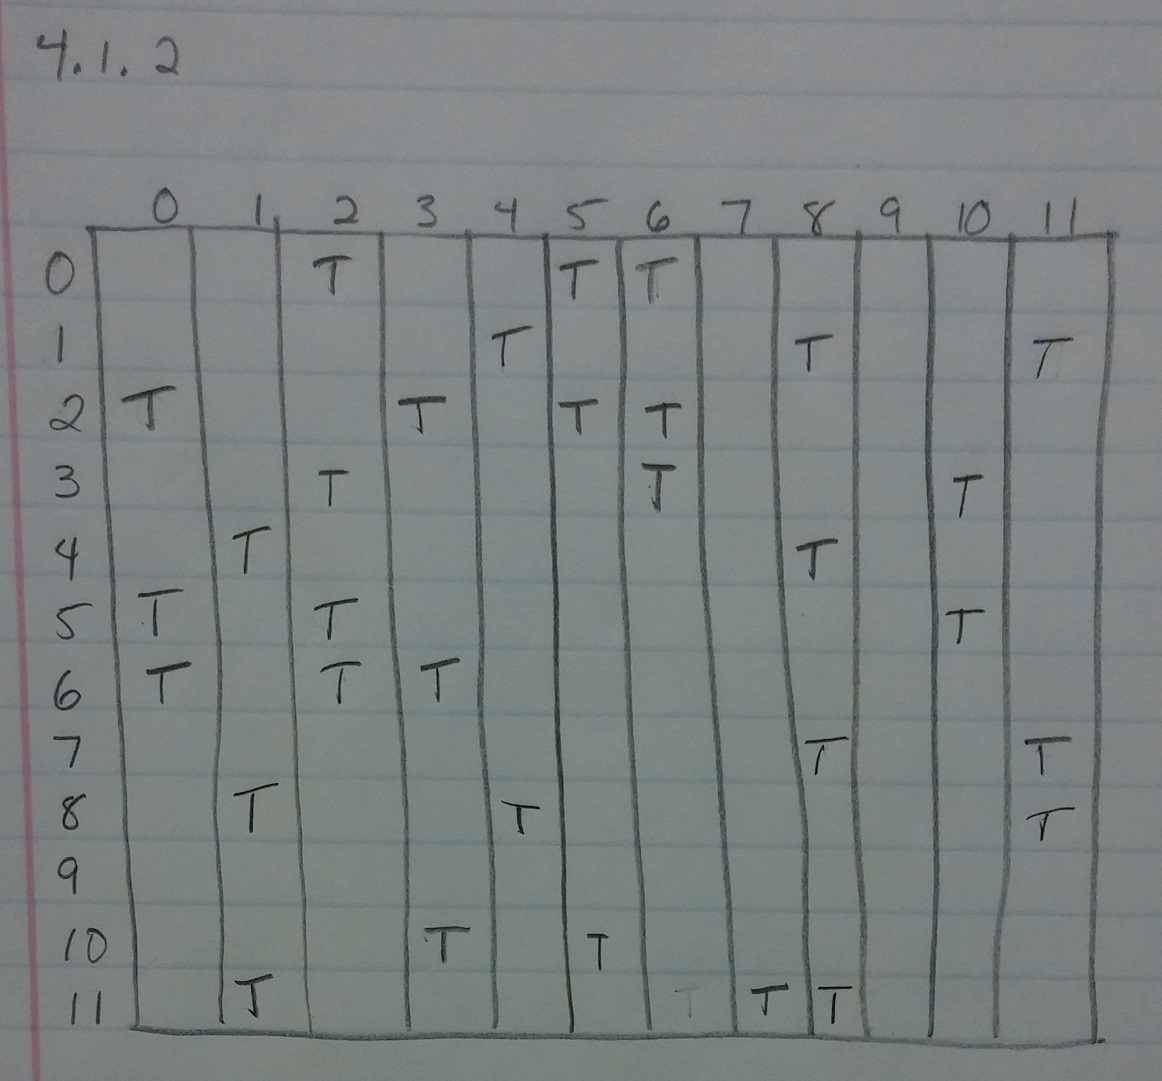 4.1.2
0 1 2 3 4 5 6 7 8 9 10 11
0 T T T
1 T T T
2 T T T T
3 T T T
4 T T
5 T T T
6 T T T
7 T T
8 T T T
9
10 T T
11 T T T